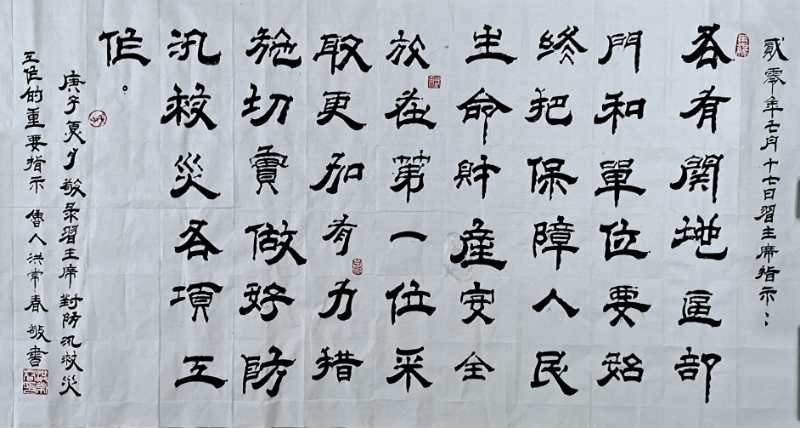 貳零年七月十七日習主席指示：
各有關地區部
門和單位要始
終把保障人民
生命財產安全
放在第一位采
取更加有力措
施切實做好防
汛救災各項工
作。
庚子夏月敬录習主席對防汛救災
工作的重要指示 魯人洪常春敬書